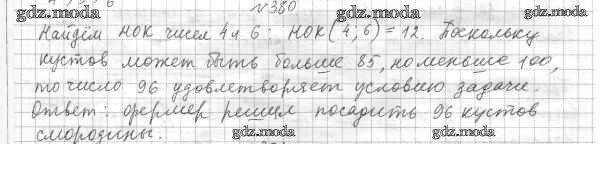 №380
Найдём НОК чисел 4 и 6: НОК(4;6)=12. Поскольку
gdz.moda gdz.moda
кустов может быть больше 85, но меньше 100,
то число 96 удовлетворяет условию задачи.
Ответ: фермер решил посадить 96 кустов
gdz.moda gdz.moda gdz.moda
смородины.